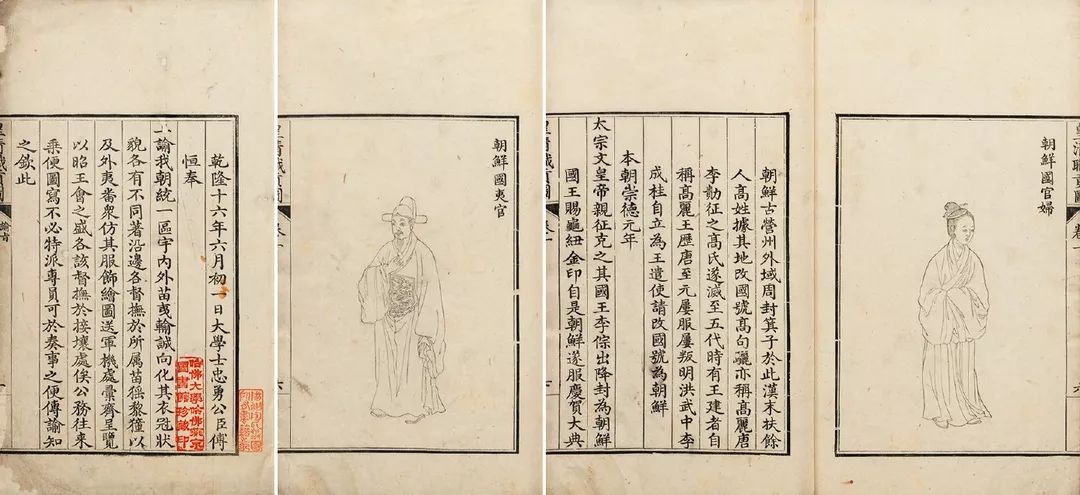 乾隆十六年六月初一日大學士忠勇公臣傅
恒奉
上諭我朝統一區宇內外苗夷輸誠向化其衣冠狀
貌各有不同著沿邊各督撫於所屬苗猺黎獞以
及外夷番衆仿其服飾繪圖送軍機處彙齊呈覽
以昭王會之盛各該督撫於接壤處俟公務往來
乘便圖寫不必特派專員可於奏事之便傳諭知
之欽此
哈佛大學哈佛燕京
圖書館珍藏印
皇清職貢圖
諭旨
朝鮮國夷官
朝鮮古營州外域周封箕子於此漢末扶餘
人高姓據其地改國號高句驪亦稱高麗唐
李勣征之高氏遂滅至五代時有王建者自
稱高麗王歷唐至元屢服屢叛明洪武中李
成桂自立為王遣使請改國號為朝鮮
本朝崇德元年
太宗文皇帝親征克之其國王李倧出降封為朝鮮
國王賜龜紐金印自是朝鮮遂服慶賀大典
皇清職貢圖
卷一
朝鮮國官婦